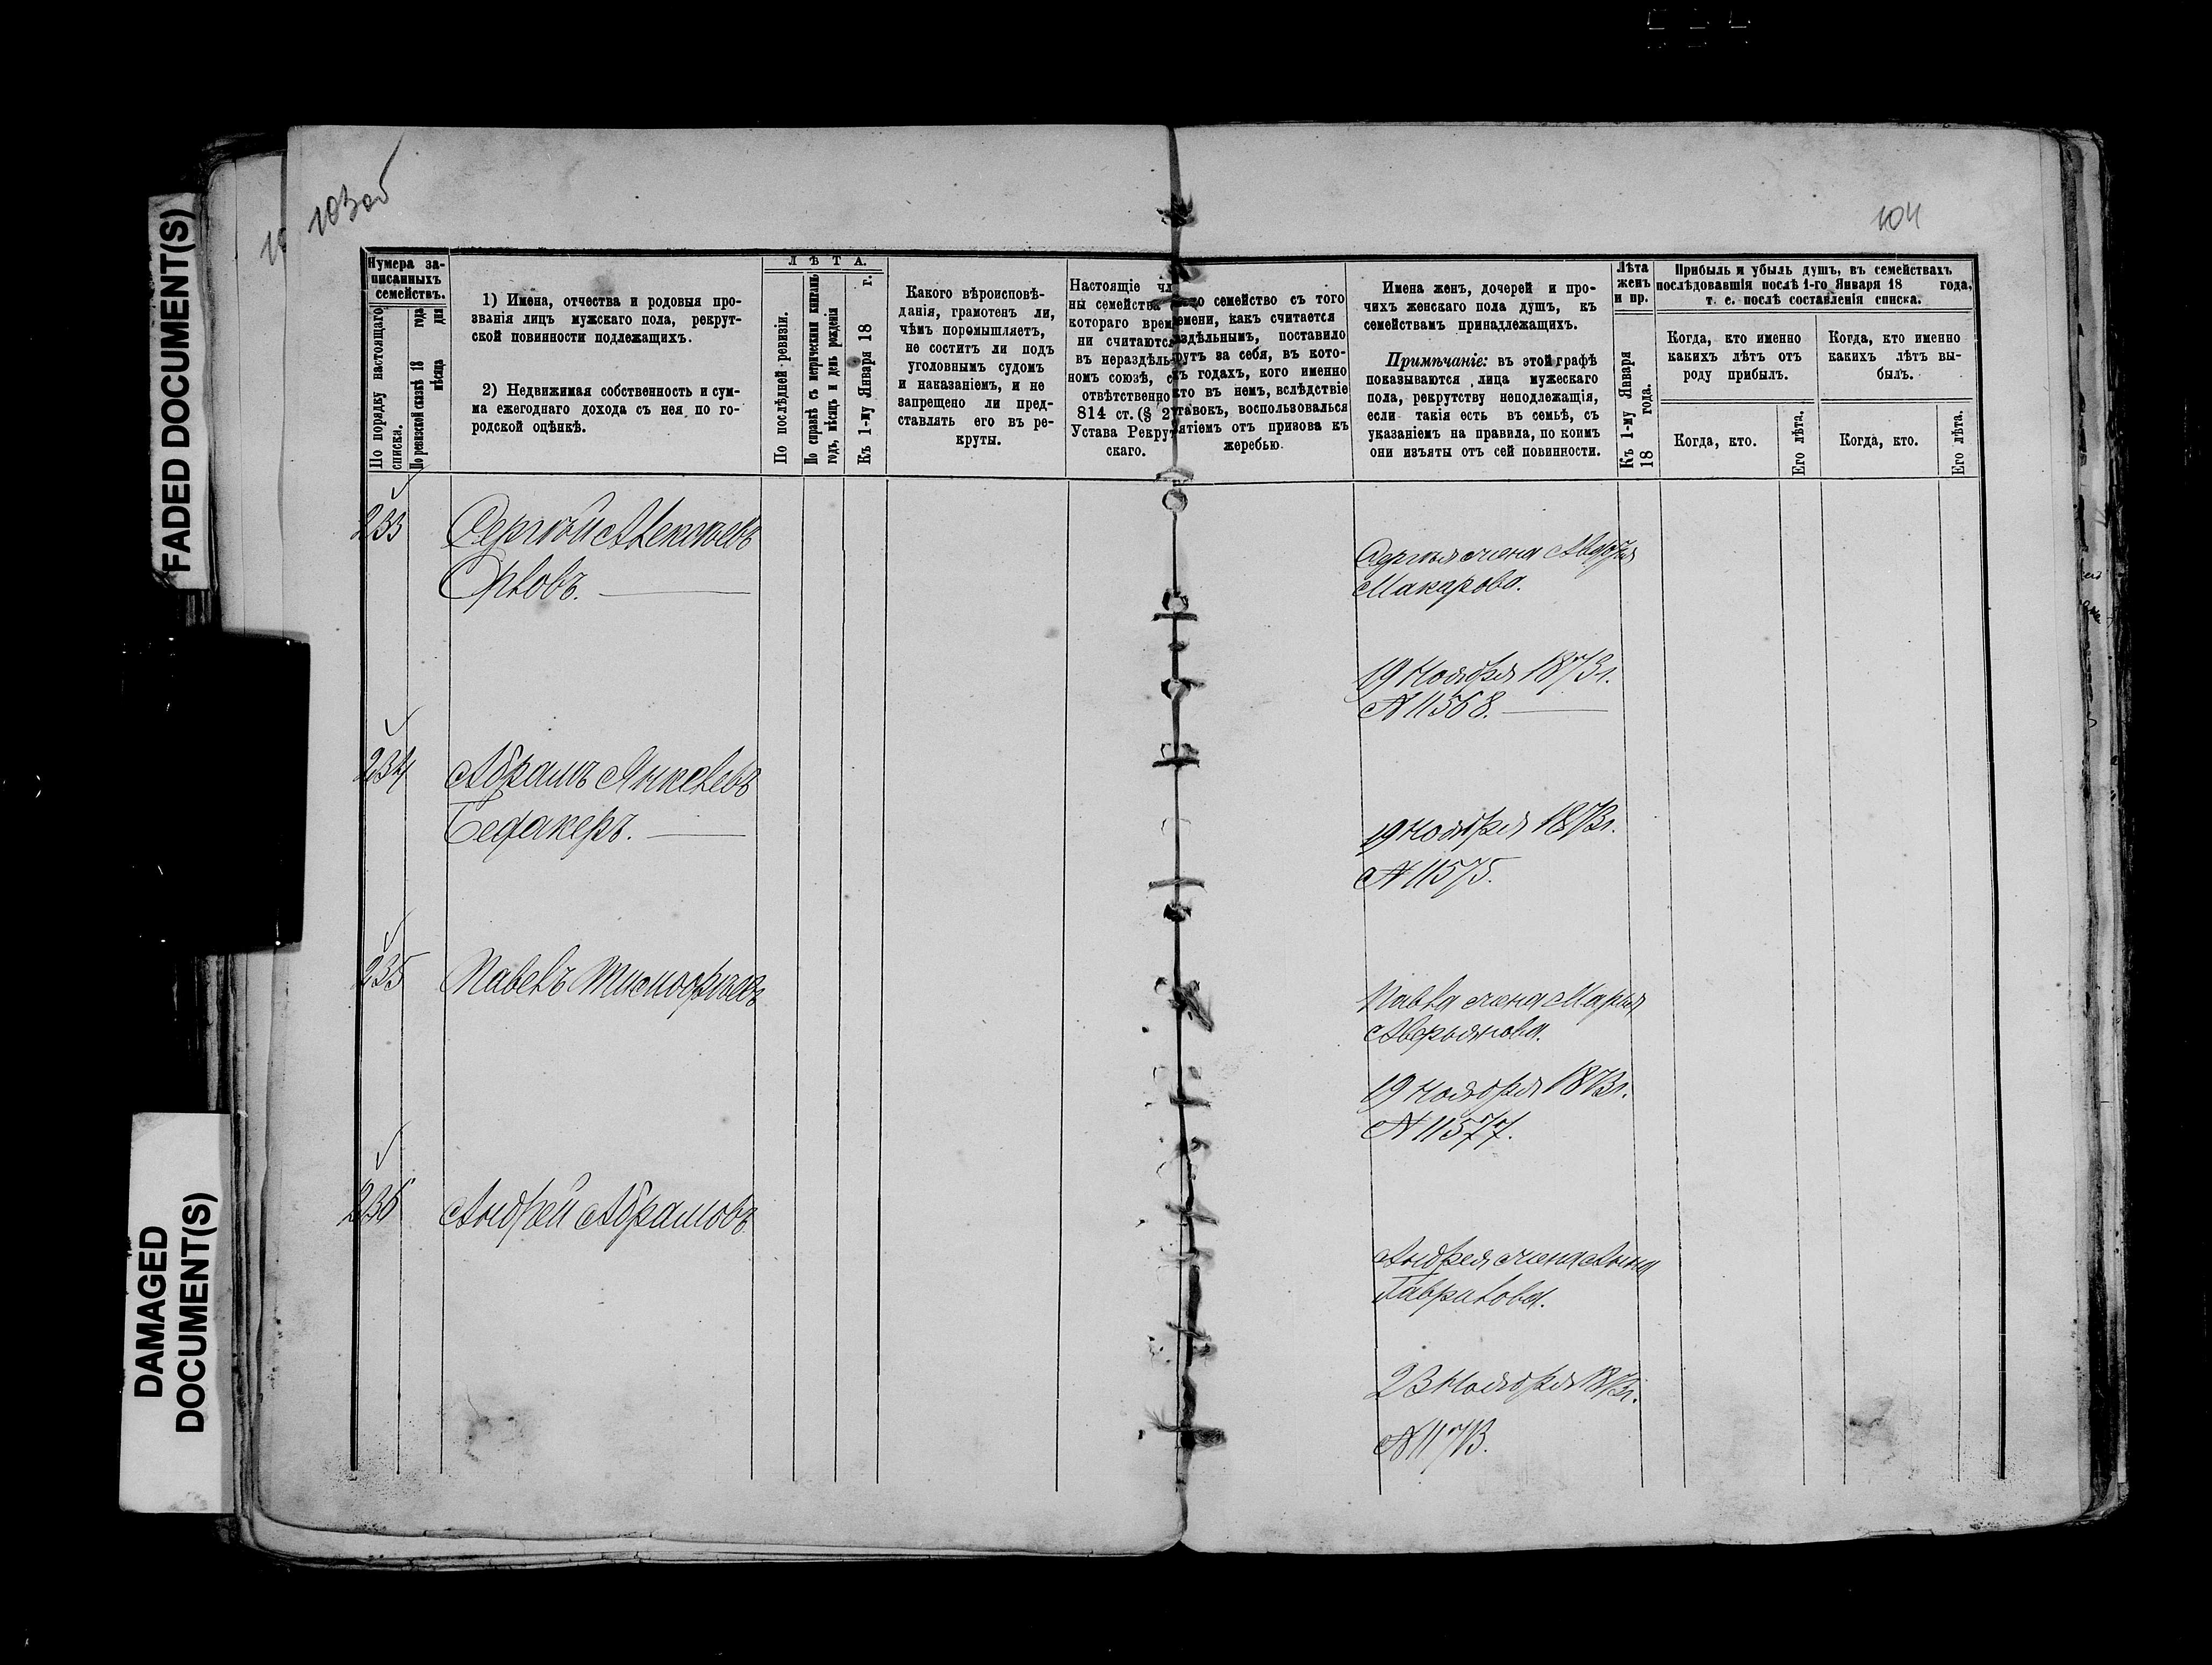 FADED DOCUMENT(S)
DAMAGED
DOCUMENT(S)
103об
104
Нумера за-
писанныхъ
семействъ.
По порядку настоящаго
списка.
По ревизской сказкѣ 18 года
мѣсяца дня
1) Имена, отчества и родовыя про-
званія лицъ мужскаго пола, рекрут-
ской повинности подлежащихъ.
2) Недвижимая собственность и сум-
ма ежегоднаго дохода съ нея по го-
родской оцѣнкѣ.
ЛѢТА.
По послѣдней ревизіи.
По справкѣ съ метрическими книгами
годъ, мѣсяцъ и день рожденія
Къ 1-му Января 18 г.
Какого вѣроисповѣ-
данія, грамотенъ ли,
чѣмъ поромышляетъ,
не соститъ ли подъ
уголовнымъ судомъ
и наказаніемъ, и не
запрещено ли пред-
ставлять его въ ре-
круты.
Настоящіе чл
ны семейства
котораго врем
ни считаютс
въ нераздѣль-
номъ союзѣ, с
отвѣтственно
814 ст. (§ 2
Устава Рекрут
скаго.
семейство съ того
емени, какъ считается
здѣльнымъ, поставило
рутъ за себя, въ кото-
хъ годахъ, кого именно
кто въ немъ, вслѣдствіе
тавокъ, воспользовался
ятіемъ отъ призова къ
жеребью.
Имена женъ, дочерей и про-
чихъ женскаго пола душъ, къ
семействамъ принадлежащихъ.
Примѣчаніе: въ этой графѣ
показываются лица мужескаго
пола, рекрутству неподлежащія,
если такія есть въ семьѣ, съ
указаніемъ на правила, по коимъ
они изъяты отъ сей повинности.
Лѣта
женъ
и пр.
Къ 1-му Января
18 года.
Прибыль и убыль душъ, въ семействахъ
послѣдовавшія послѣ 1-го Января 18 года,
т. е. послѣ составленія списка.
Когда, кто именно
какихъ лѣтъ отъ
роду прибылъ.
Когда, кто именно
какихъ лѣтъ вы-
былъ.
Когда, кто.
Его лѣта.
Когда, кто.
Его лѣта.
233
Сергѣй Алексѣевъ
Орловъ.
Сергѣя жена Авдотья
Макарова.
19 Ноября 1873 г.
№ 11568.
234
Абрамъ Янкелевъ
19 Ноября 1873 г.
№ 11575.
235
Павелъ Тимофѣевъ
Павла жена Марья
Аверьянова.
19 Ноября 1873 г.
№ 11577.
236
Андрей Абрамовъ
Андрея жена Анна
Гаврилова.
23 Ноября 1873 г.
№ 11713.